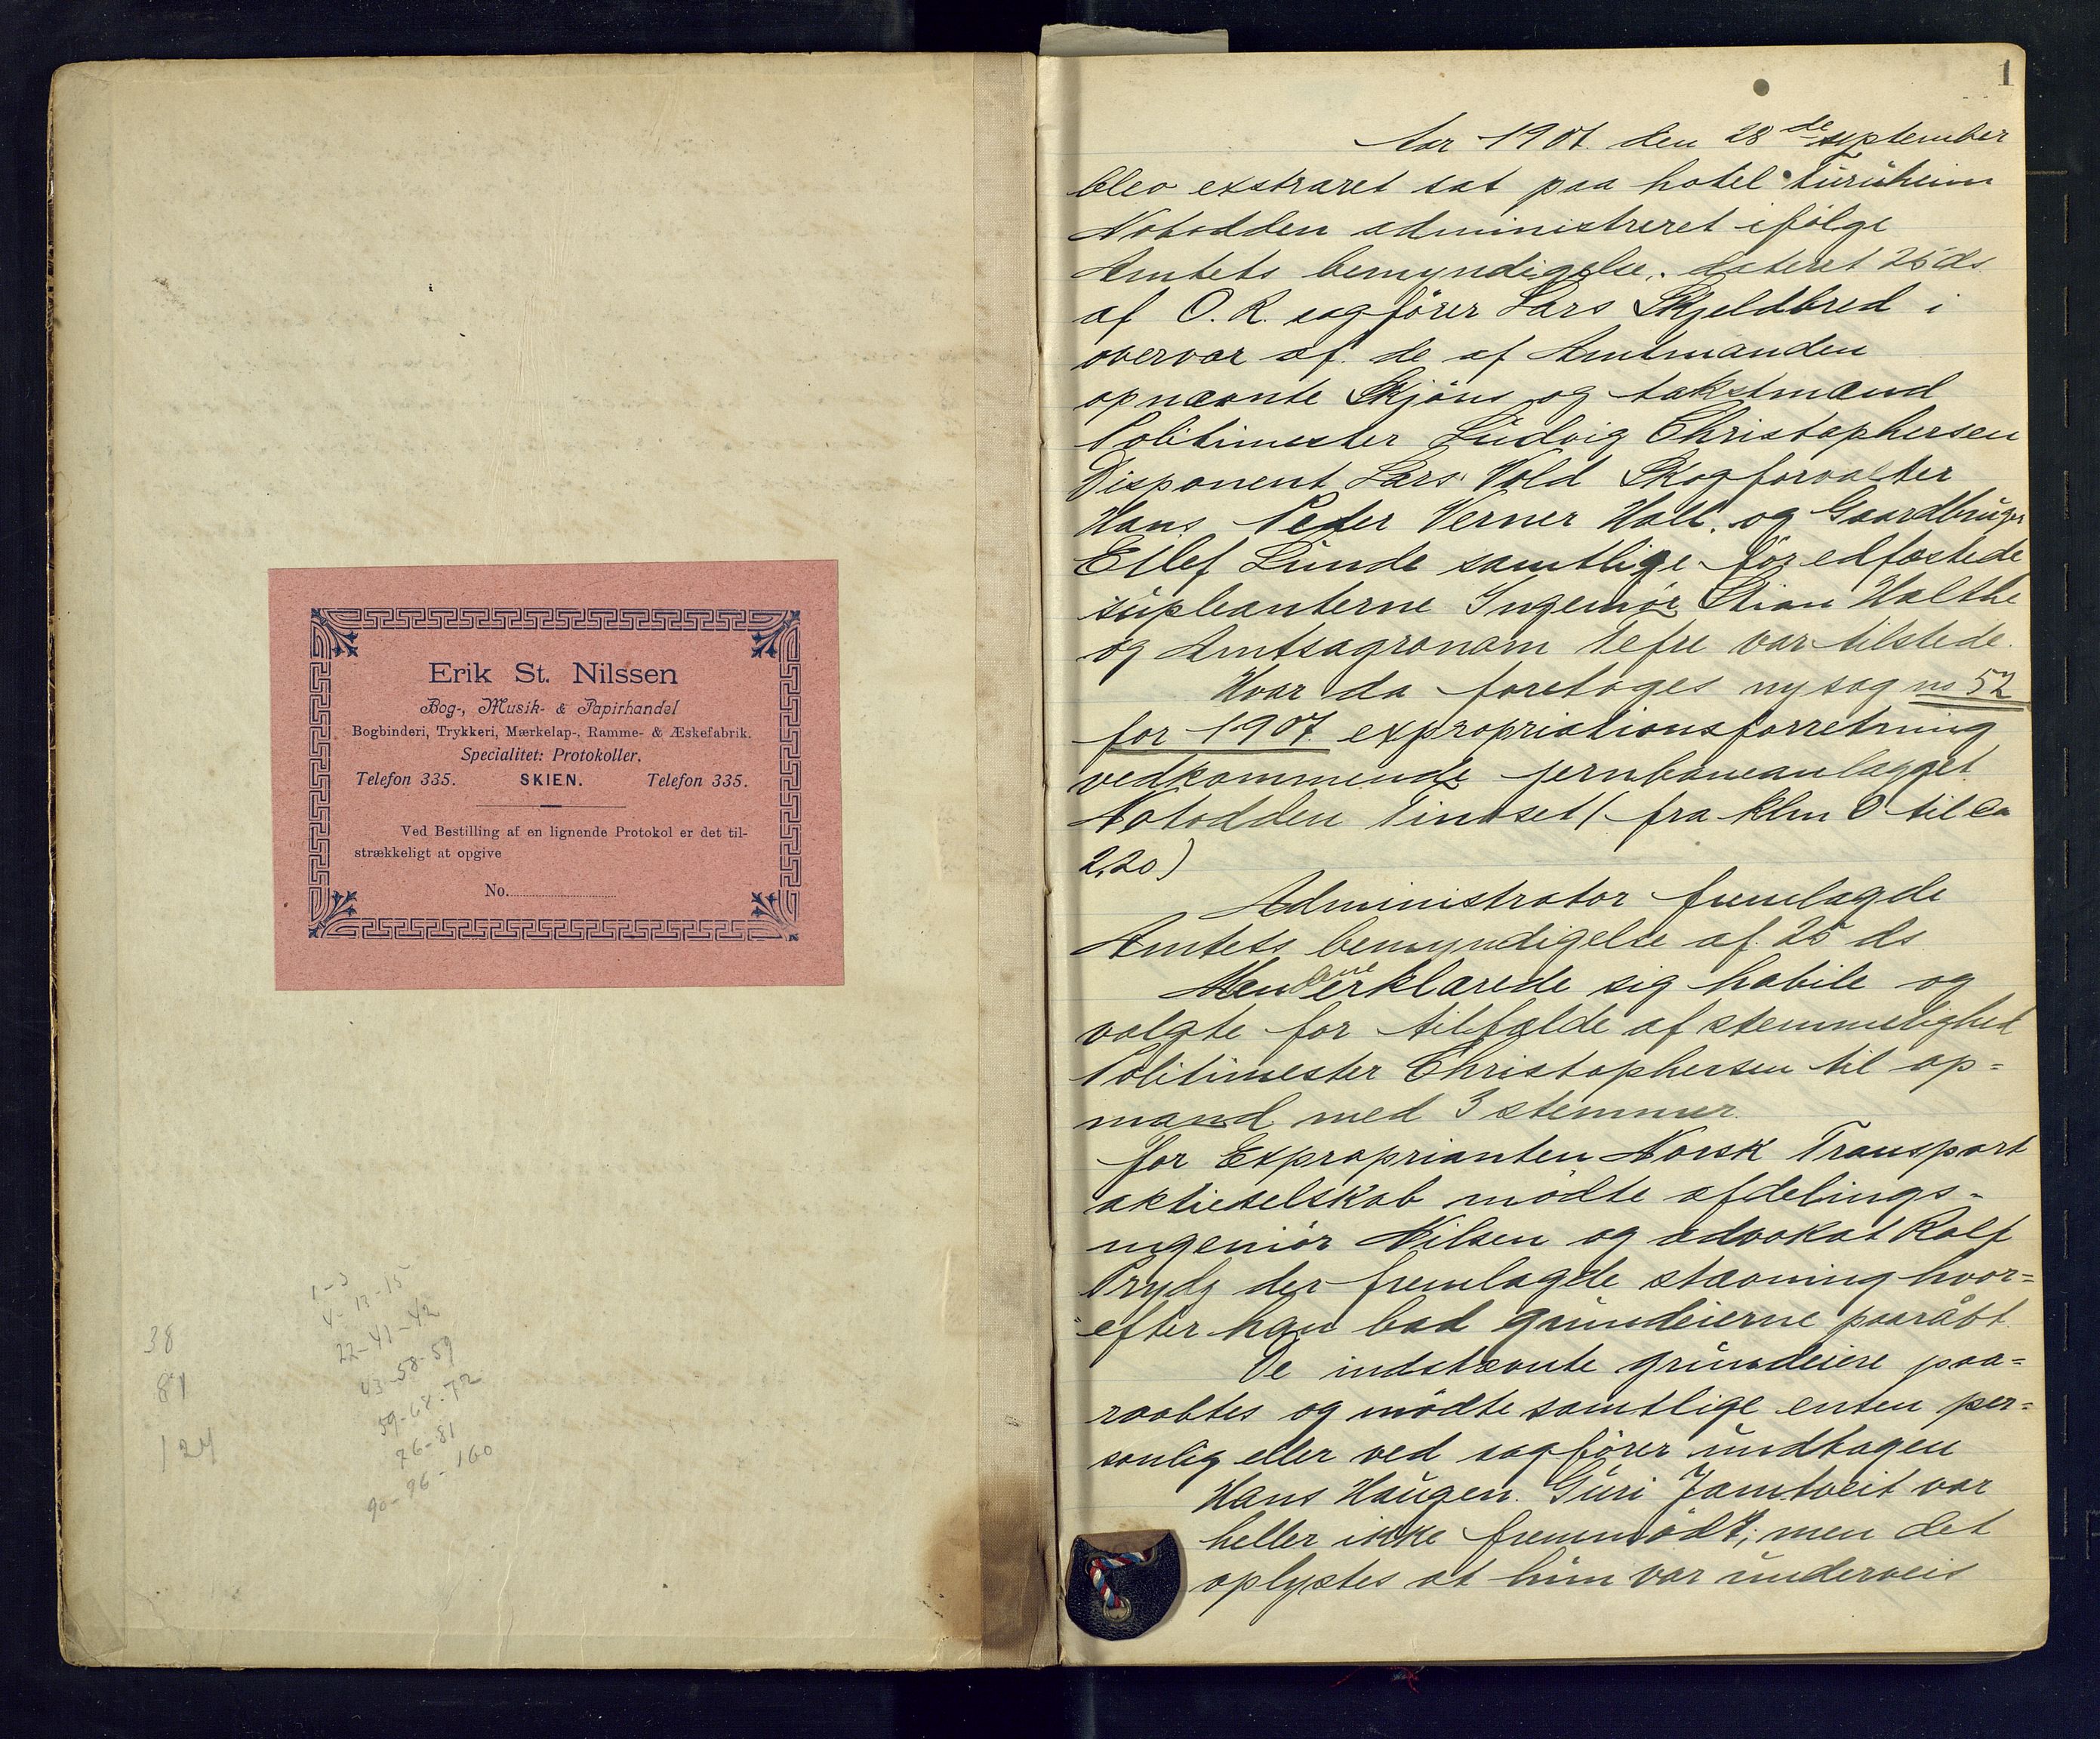 Erik St. Nilssen
Bog-, Musik- & Papirhandel
Bogbinderi, Trykkeri, Mærkelap-, Ramme- & Æskefabrik.
Specialitet: Protokoller.
Telefon 335. SKIEN. Telefon 335.
Ved Bestilling af en lignende Protokol er det til-
strækkeligt at opgive
No.
1-3
4-13-15
22-41-42
43-58-59
59-68-72
76-81
90-96-100
38
81
124
1
Aar 1907. den 28de september
blev exstraret sat paa hotel Furuheim
Notodden administreret ifølge
Amtets bemyndigelse, dateret 25 ds
af O. R. sagfører Lars Skjeldbred i
overvær af de af Amtmanden
opnævnte Skjøns og takstmænd
Politimester Ludvig Christophersen
Disponent Lars Vold Skogforvalter
Hans Peder Verner Holt. og Gaardbruger
Ellef Lunde samtlige før edfæstede
supleanterne Ingeniør Stian Walthe
og Amtsagronom Tefre var tilstede.
Hvor da foretoges ny sag no 52
for 1907. expropriationsforretning
vedkommende jernbaneanlægget
Notodden Tinoset (fra Klm 0 til Ca
2,20)
Administrator fremlagde
Amtets bemyndigelse af 25 ds
Mændene erklærede sig habile og
valgte for tilfælde af stemmelighed
Politimester Christophersen til op=
mand med 3 stemmer.
for Exproprianten Norsk Transport
aktieselskab mødte afdelings-
ingeniør Nilsen og advokat Rolf
Prydz der fremlagde stævning hvor=
efter han bad grundeierne paaråbt.
De indstævnte grundeiere paa=
raabtes og mødte samtlige enten per=
sonlig eller ved sagfører undtagen
Hans Haugen. Guri Jamtveit var
heller ikke fremmødt, men det
oplystes at hun var underveis